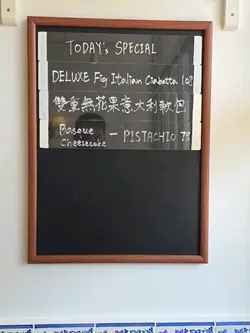 TODAY'S SPECIAL
DELUXE Fig Italian Ciabatta 10?
雙重無花果意大利軟包
Basque Cheesecake - PISTACHIO 78